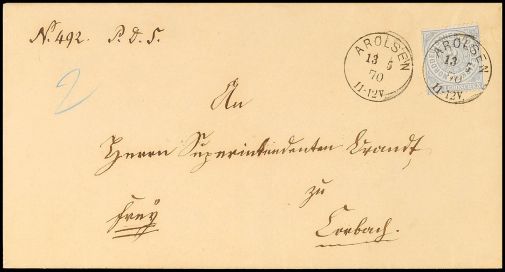 N. 492. P. D. S.
AROLSEN
13 5
70
11-12V.
AROLSEN
13 5
70
11-12V.
2
An
Herrn Superintendenten Brandt
zu
frey
Corbach.